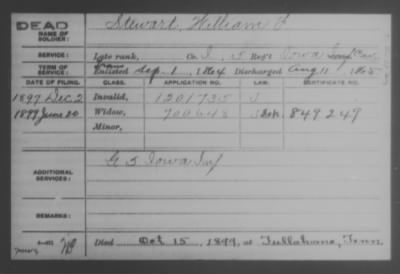 DEAD
NAME OF SOLDIER: Stewart, William F
SERVICE: Late rank, Co. I, 5 Reg't Iowa Cav
TERM OF SERVICE: Enlisted Sep. 1, 1864 Discharged Aug 11, 1865
DATE OF FILING. CLASS. APPLICATION NO. LAW. CERTIFICATE NO.
1897 Dec 2 Invalid, 1201735
1899 June 20 Widow, 700648 849249
Minor,
ADDITIONAL SERVICES: G 5 Iowa Inf
REMARKS:
Died Oct 15, 1899, at Tullahoma, Tenn.